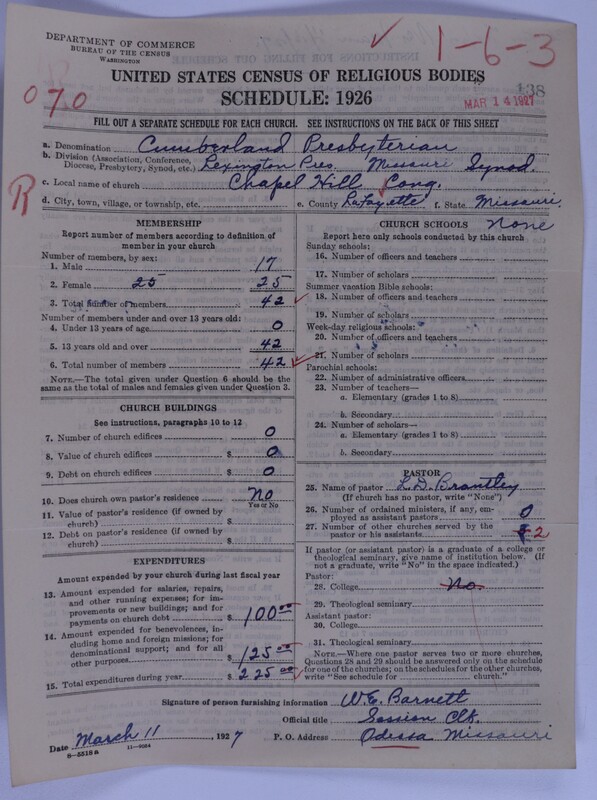 DEPARTMENT OF COMMERCE
BUREAU OF THE CENSUS
WASHINGTON
1-6-3
UNITED STATES CENSUS OF RELIGIOUS BODIES
138
070
SCHEDULE: 1926
MAR 14 1927
FILL OUT A SEPARATE SCHEDULE FOR EACH CHURCH. SEE INSTRUCTIONS ON THE BACK OF THIS SHEET
a. Denomination Cumberland Presbyterian
b. Division (Association, Conference, Diocese, Presbytery, Synod, etc.) Lexington Pres. Missouri Synod.
c. Local name of church Chapel Hill Cong.
R
d. City, town, village, or township, etc. e. County LaFayette f. State Missouri
MEMBERSHIP
Report number of members according to definition of member in your church
Number of members, by sex:
1. Male 17
2. Female 25 25
3. Total number of members 42
Number of members under and over 13 years old:
4. Under 13 years of age 0
5. 13 years old and over 42
6. Total number of members 42
NOTE.—The total given under Question 6 should be the same as the total of males and females given under Question 3.
CHURCH BUILDINGS
See instructions, paragraphs 10 to 12
7. Number of church edifices 0
8. Value of church edifices $ 0
9. Debt on church edifices $ 0
10. Does church own pastor's residence? No
Yes or No
11. Value of pastor's residence (if owned by church) $
12. Debt on pastor's residence (if owned by church) $
EXPENDITURES
Amount expended by your church during last fiscal year
13. Amount expended for salaries, repairs, and other running expenses; for improvements or new buildings; and for payments on church debt $ 100 00
14. Amount expended for benevolences, including home and foreign missions; for denominational support; and for all other purposes $ 125 00
15. Total expenditures during year $ 225 00
CHURCH SCHOOLS None
Report here only schools conducted by this church
Sunday schools:
16. Number of officers and teachers
17. Number of scholars
Summer vacation Bible schools:
18. Number of officers and teachers
19. Number of scholars
Week-day religious schools:
20. Number of officers and teachers
21. Number of scholars
Parochial schools:
22. Number of administrative officers
23. Number of teachers—
a. Elementary (grades 1 to 8)
b. Secondary
24. Number of scholars—
a. Elementary (grades 1 to 8)
b. Secondary
PASTOR
25. Name of pastor L.D. Brantley
(If church has no pastor, write "None")
26. Number of ordained ministers, if any, employed as assistant pastors 0
27. Number of other churches served by the pastor or his assistants 2
If pastor (or assistant pastor) is a graduate of a college or theological seminary, give name of institution below. (If not a graduate, write "No" in the space indicated.)
Pastor:
28. College No.
29. Theological seminary
Assistant pastor:
30. College
31. Theological seminary
NOTE.—Where one pastor serves two or more churches, Questions 28 and 29 should be answered only on the schedule for one of the churches; on the schedules for the other churches, write "See schedule for church."
Signature of person furnishing information W.E. Barnett
Official title Session Clk.
Date March 11, 1927 P. O. Address Odessa Missouri
8-5518a 11-9084